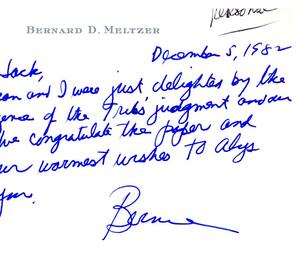 personal
BERNARD D. MELTZER
December 5, 1982
Jack,
and I were just delighted by the
ence of the Tribs' judgment and our
ve congratulate the paper and
ur warmest wishes to Alys
you.
Bernie